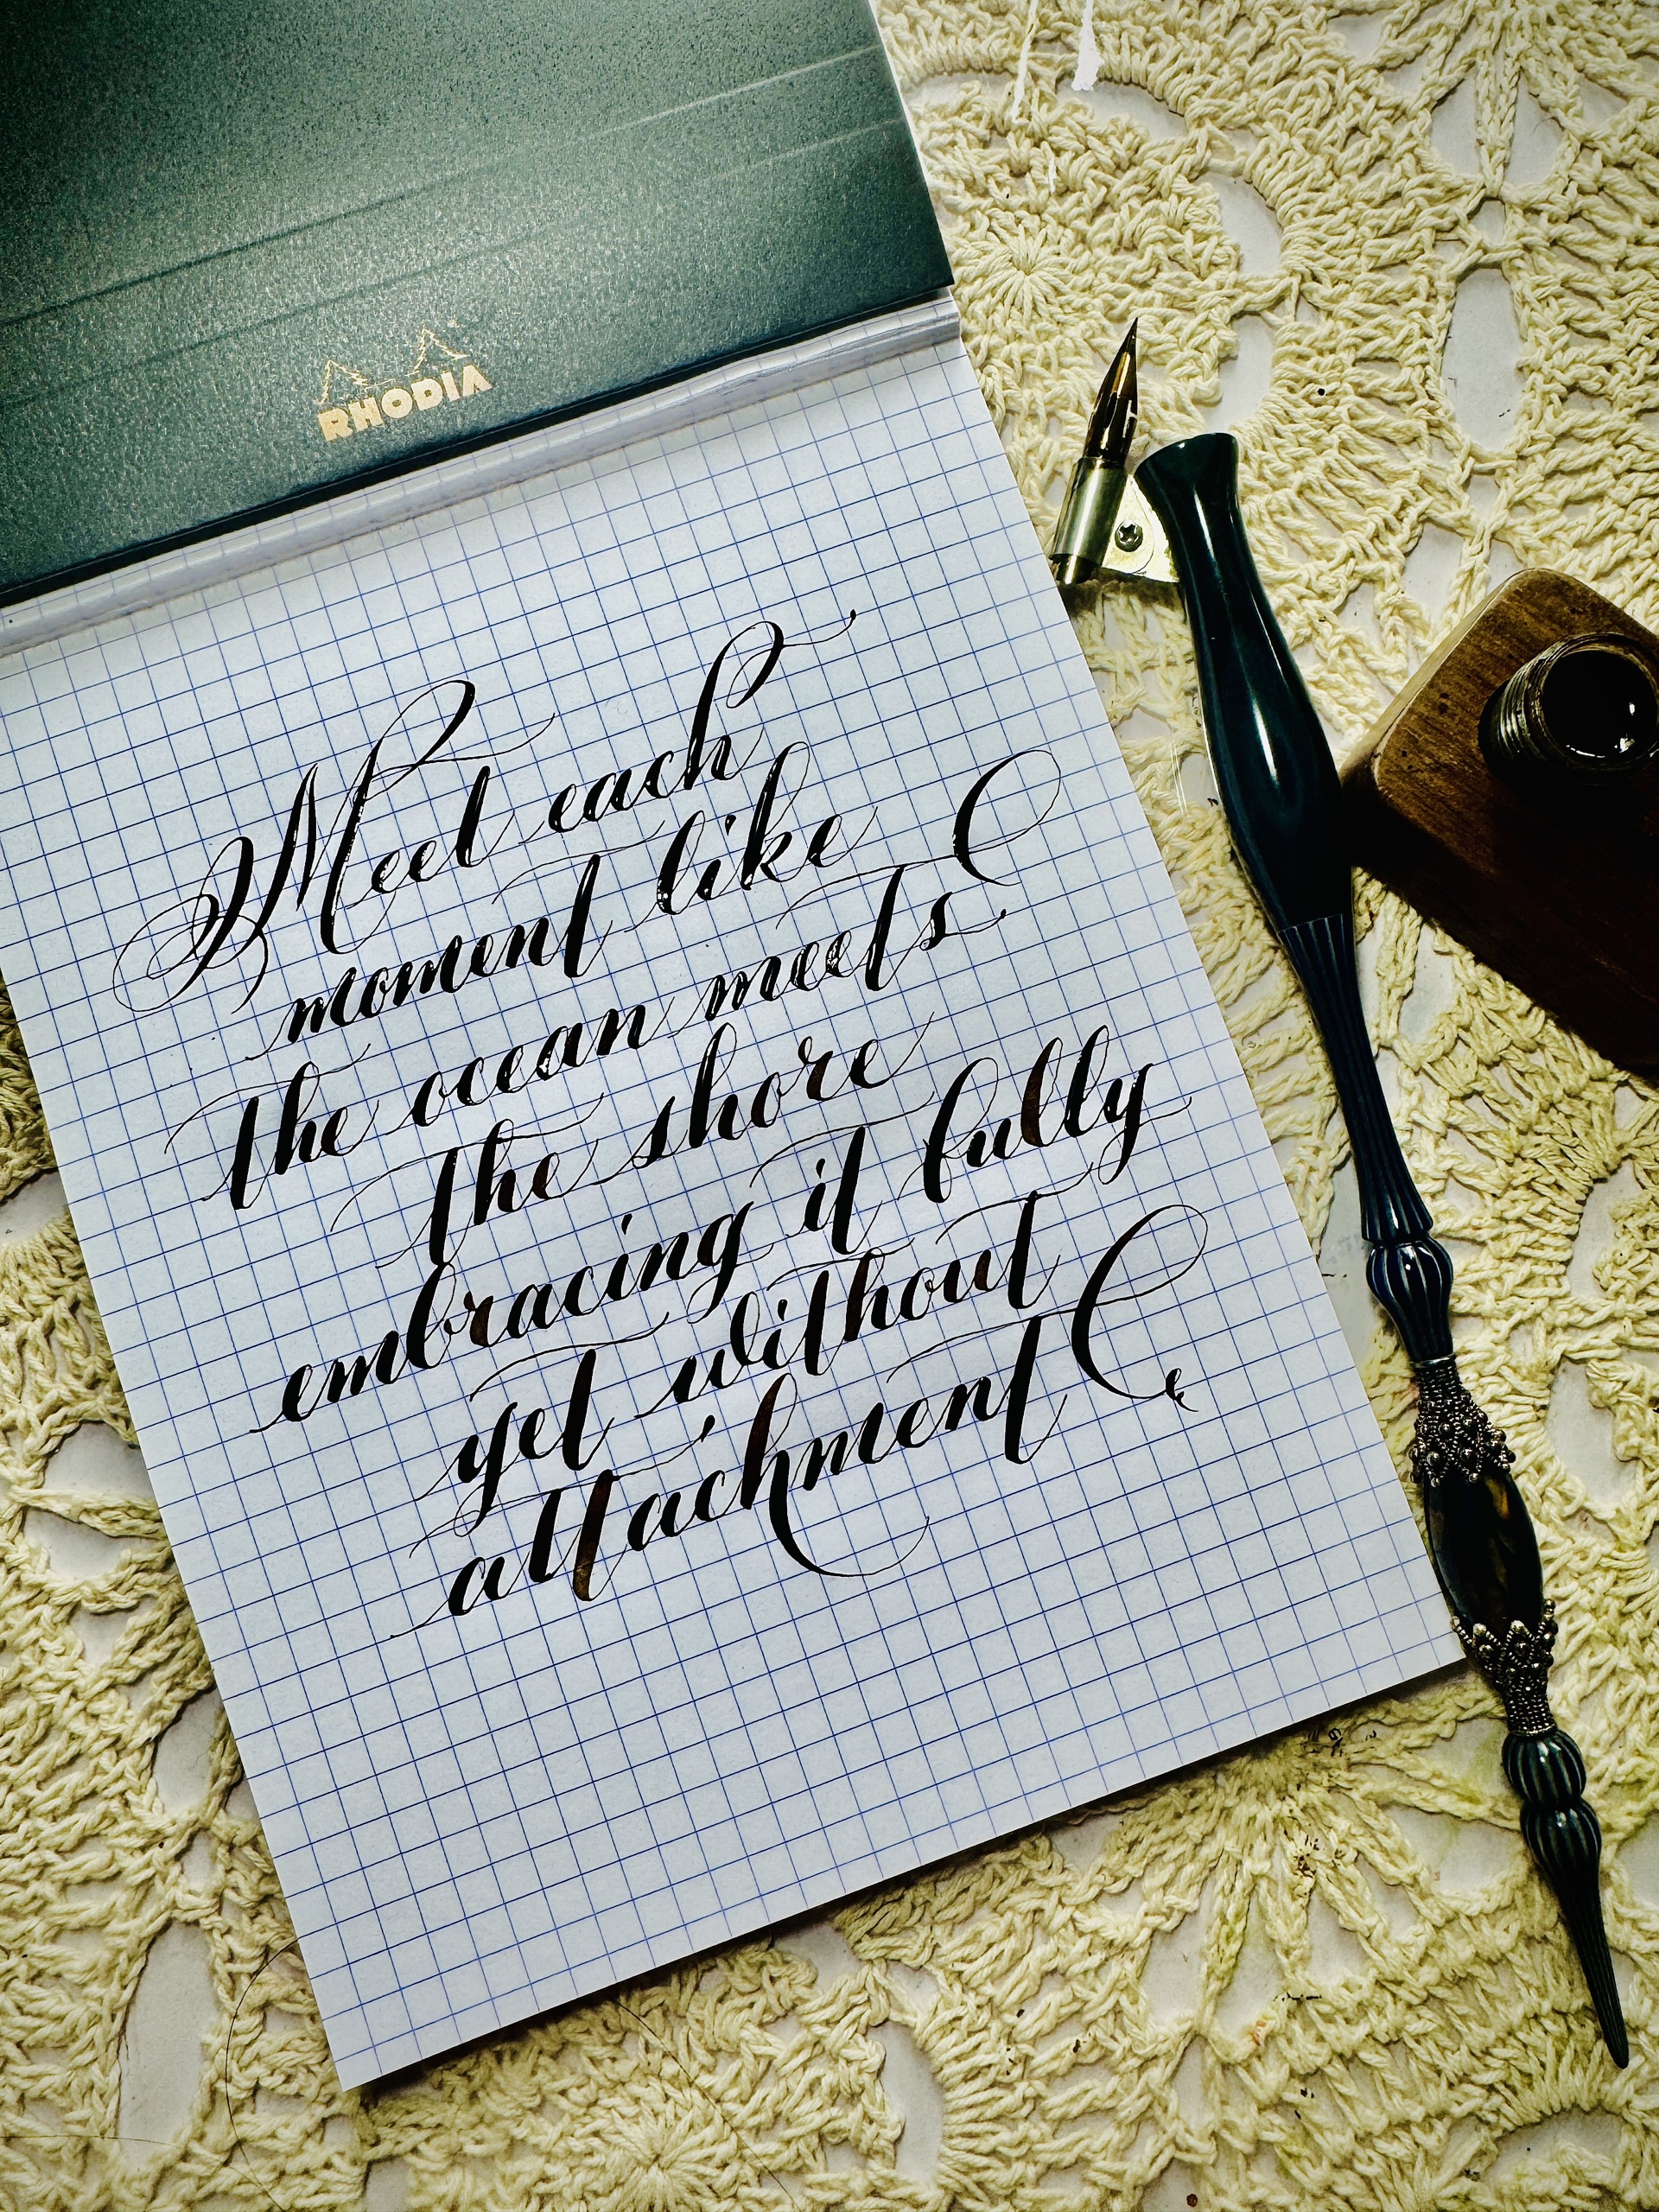 RHODIA
Meet each
moment like
the ocean meets
the shore
embracing it fully
yet without
attachment